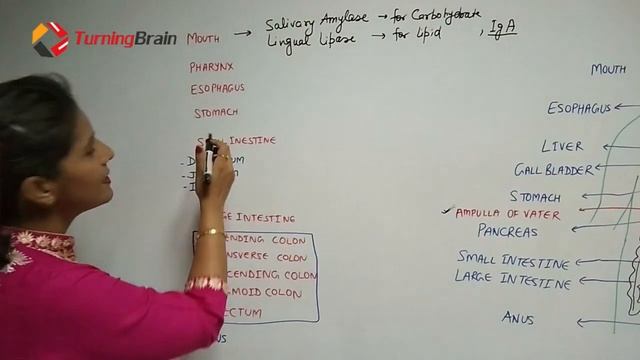 TurningBrain
MOUTH → Salivary Amylase → for Carbohydrate
Lingual Lipase → for lipid , IgA
PHARYNX
ESOPHAGUS
STOMACH
INESTINE
INTESTING
COLON
COLON
COLON
COLON
MOUTH
ESOPHAGUS
LIVER
GALL BLADDER
STOMACH
✓ AMPULLA OF VATER
PANCREAS
SMALL INTESTINE
LARGE INTESTINE
ANUS